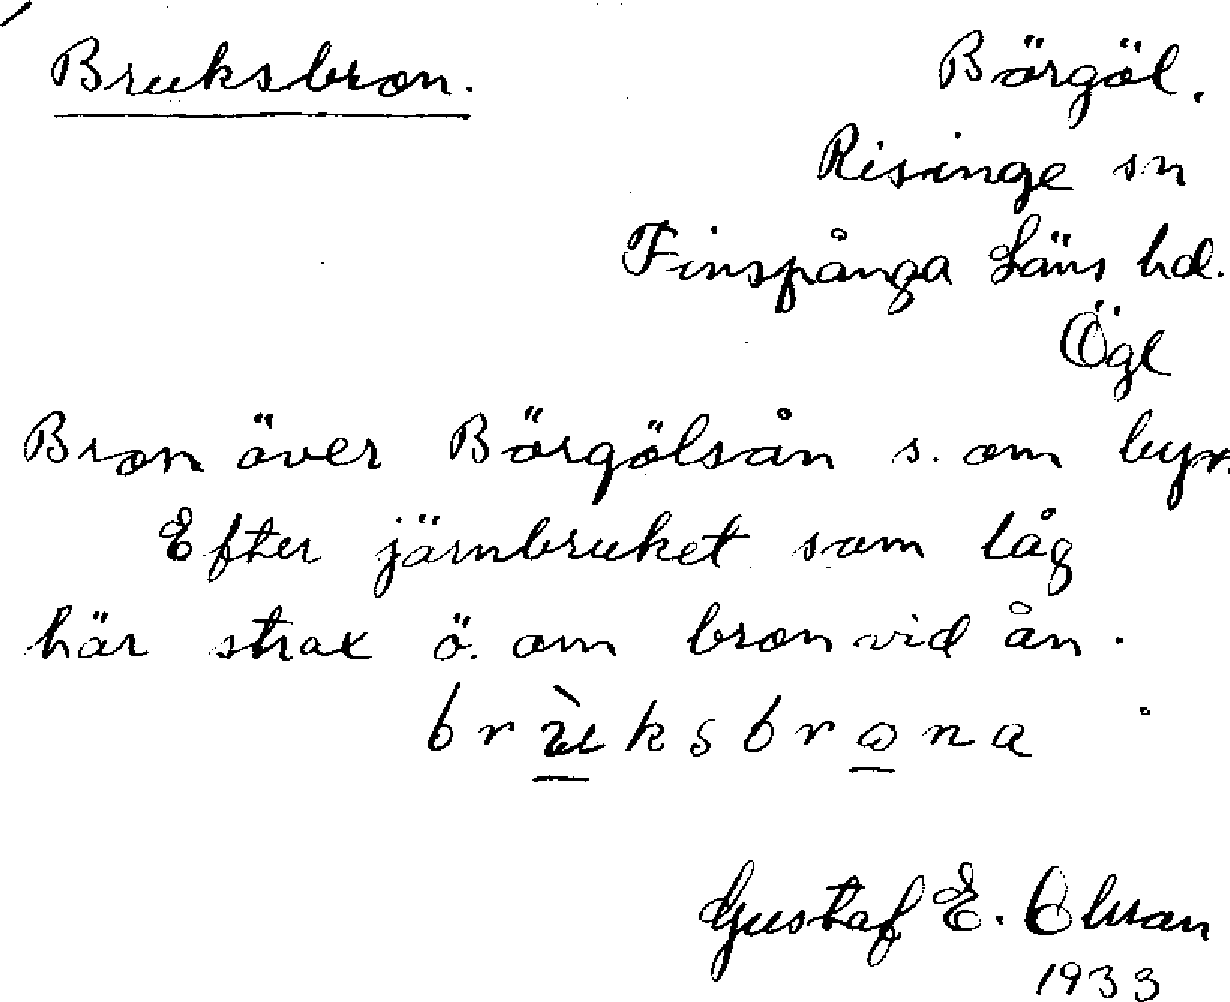 Bruksbron. Börgöl.
Risinge sn
Finspånga Läns hd.
Ögl
Bron över Börgölsån s. om byn.
Efter järnbruket som låg
här strax ö. om bron vid ån.
brùksbrona
Gustaf E. Olsson
1933